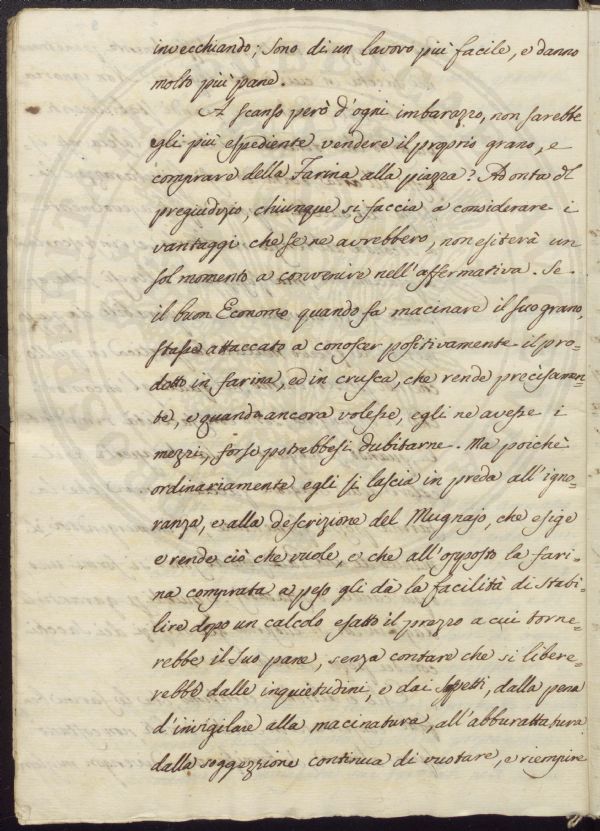 invecchiando; sono di un lavoro più facile, e danno
molto più pane.
A scanso però d'ogni imbarazzo, non sarebbe
egli più espediente vendere il proprio grano, e
comprare della Farina alla piazza? Ad onta del
pregiudizio, chiunque si faccia a considerare i
vantaggi che se ne avrebbero, non esiterà un
sol momento a convenire nell'affermativa. Se
il buon Economo quando fa macinare il suo grano,
stasse attaccato a conoscer positivamente il pro-
dotto in farina, ed in crusca, che rende precisamen-
te, e quando ancora volesse, egli ne avesse i
mezzi, forse potrebbesi dubitarne. Ma poichè
ordinariamente egli si lascia in preda all'igno-
ranza, e alla descrizione del Mugnajo, che esige
e rende ciò che vuole, e che all'opposto la fari-
na comprata a peso gli dà la facilità di stabi-
lire dopo un calcolo esatto il prezzo a cui torne-
rebbe il suo pane, senza contare che si libere-
rebbe dalle inquietudini, e dai sospetti, dalla pena
d'invigilare alla macinatura, all'abburattatura
dalla soggezzione continua di vuotare, e riempire